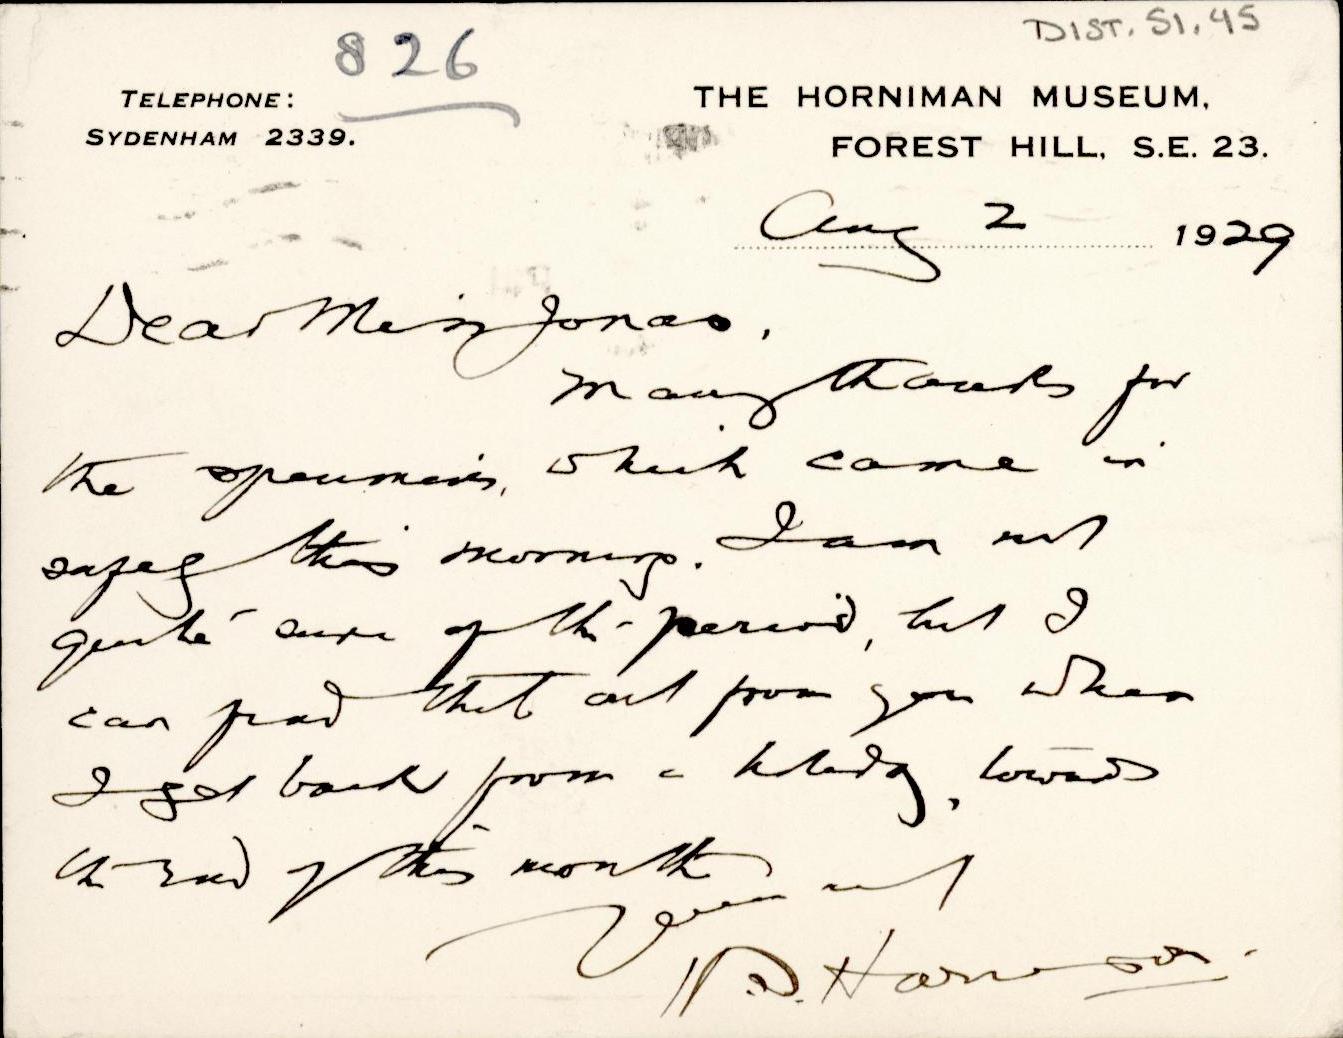 DIST. 51. 45
826
TELEPHONE:
SYDENHAM 2339.
THE HORNIMAN MUSEUM,
FOREST HILL, S.E. 23.
Aug 2 1929
Dear Miss Jonas,
Many thanks for
the specimens, which came in
safely this morning. I am not
quite sure of the period, but I
can find that out from you when
I get back from a holiday, towards
the end of this month
H. S. Harrison.